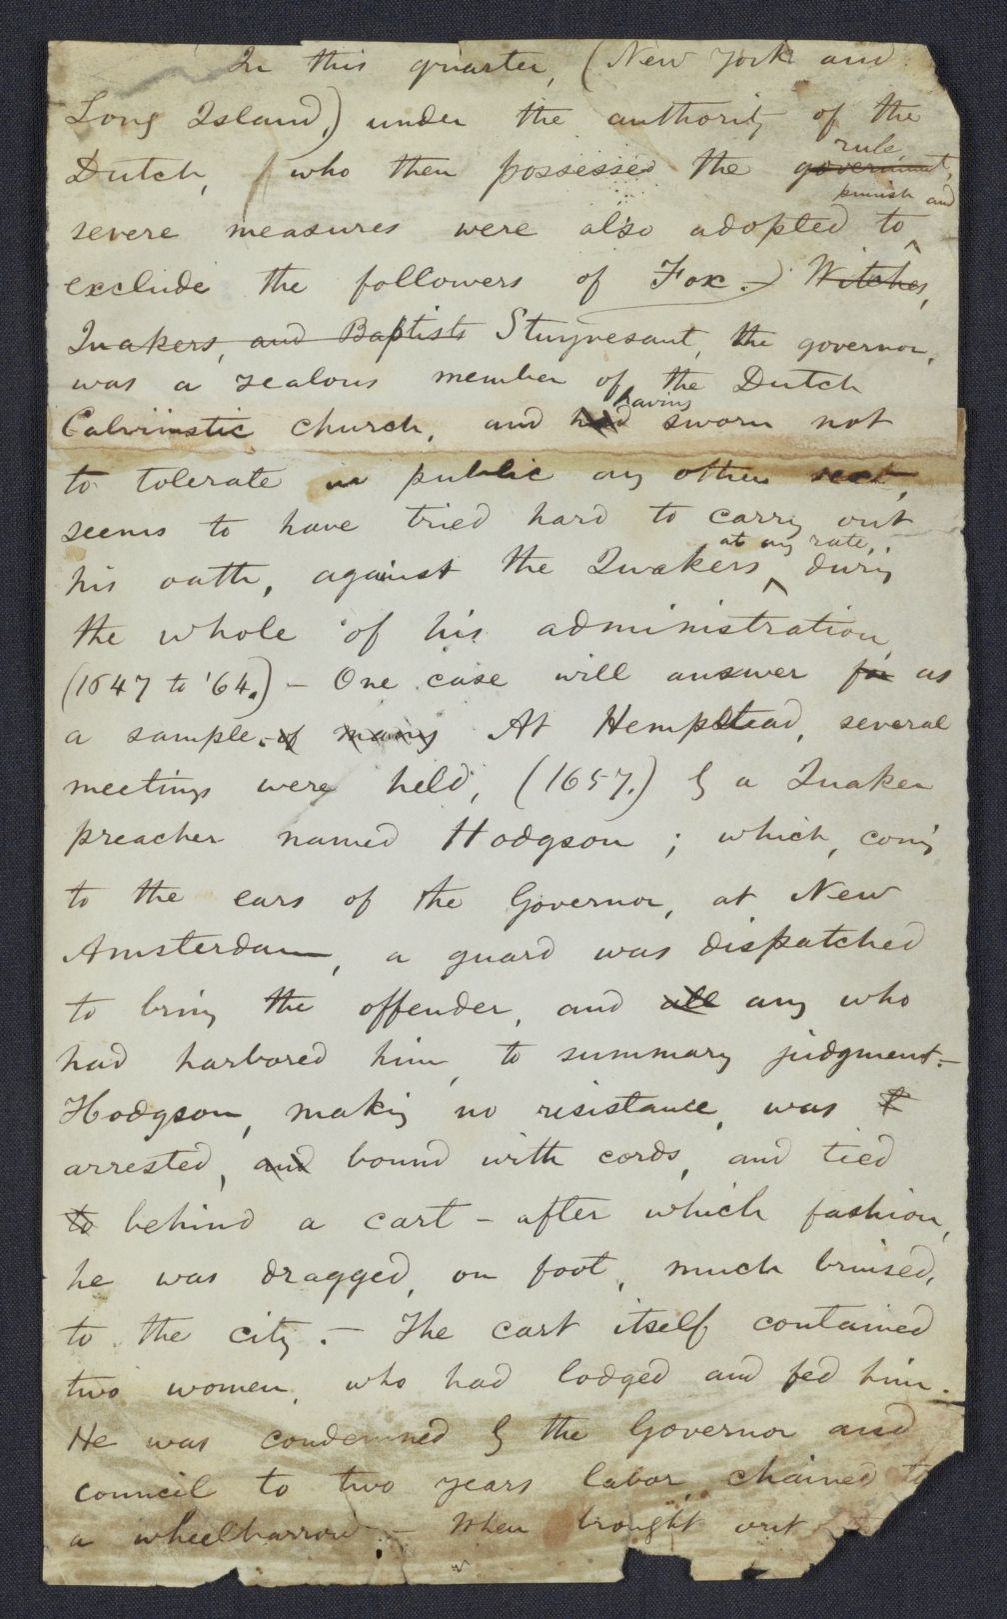 In this quarter, (New York and
Long Island,) under the authority of the
rule
Dutch, (who then possessed the government,
punish and
severe measures were also adopted to
exclude the followers of Fox.) Witches,
Quakers, and Baptists Stuyvesant, the governor,
was a zealous member of the Dutch
having
Calvinistic church, and had sworn not
to tolerate in public any other sect,
seems to have tried hard to carry out
at any rate,
his oath, against the Quakers during
the whole of his administration
(1647 to '64.) – One case will answer for as
a sample. of many At Hempstead, several
meetings were held, (1657.) by a Quaker
preacher named Hodgson; which, coming
to the ears of the Governor, at New
Amsterdam, a guard was dispatched
to bring the offender, and all any who
had harbored him, to summary judgment. –
Hodgson, making no resistance, was t
arrested, and bound with cords, and tied
to behind a cart – after which fashion,
he was dragged, on foot, much bruised,
to the city. – The cart itself contained
two women, who had lodged and fed him.
He was condemned by the Governor and
council to two years labor, chained to
a wheelbarrow. – When brought out